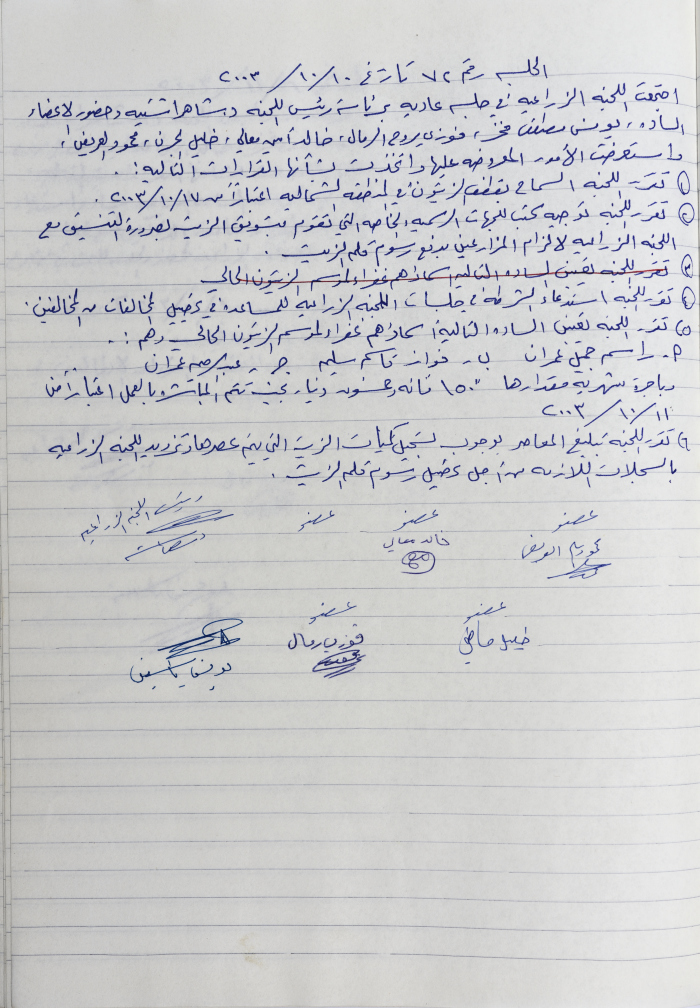 الجلسه رقم ٧٢ تاريخ ١٠/١٠/٢٠٠٣
اجتمعت اللجنه الزراعيه في جلسه عاديه برئاسة رئيس اللجنه وحضور الاعضاء
الساده، يونس مصطفى، فوزي بروح الرمال، خالد معالي، خليل، محمود العريض،
واستعرضت الأمور المعروضه عليها واتخذت بشأنها القرارات التاليه: .
١) تقرر اللجنه السماح بقطف الزيتون في المنطقه الشماليه اعتباراً من ١٧/١٠/٢٠٠٣ .
٢) تقرر اللجنه توجيه كتب للجهات الرسميه الخاصه التي تقوم بتسويق الزيت بضرورة التنسيق مع
اللجنه الزراعيه لالزام المزارعين بدفع رسوم قلم الزيت .
٣) تقرر اللجنه تعيين الساده التاليه اسماؤهم غفراء لموسم الزيتون الحالي
٤) تقرر اللجنه استدعاء الشرطه في جلسات اللجنه الزراعيه للمساعده في تحصيل المخالفات من المخالفين .
٥) تقرر اللجنه تعيين الساده التاليه اسماؤهم غفراء لموسم الزيتون الحالي وهم : .
٢- راسم جميل عمران ب- فواز قاسم سليم ج- عمران
وباجرة شهرية مقدارها "١٥٠" مائه وخمسون دينار بحيث تتم المباشره بالعمل اعتباراً من
١١/١٠/٢٠٠٣
٦) تقرر اللجنه تبليغ المعاصر بوجوب تسجيل كميات الزيت التي يتم عصرها وتزويد اللجنه الزراعيه
بالسجلات اللازمه من اجل تحصيل رسوم قلم الزيت .
عضو عضو عضو رئيس اللجنه الزراعيه
خالد معالي
عضو عضو
خليل فوزي رمال يونس ياسين